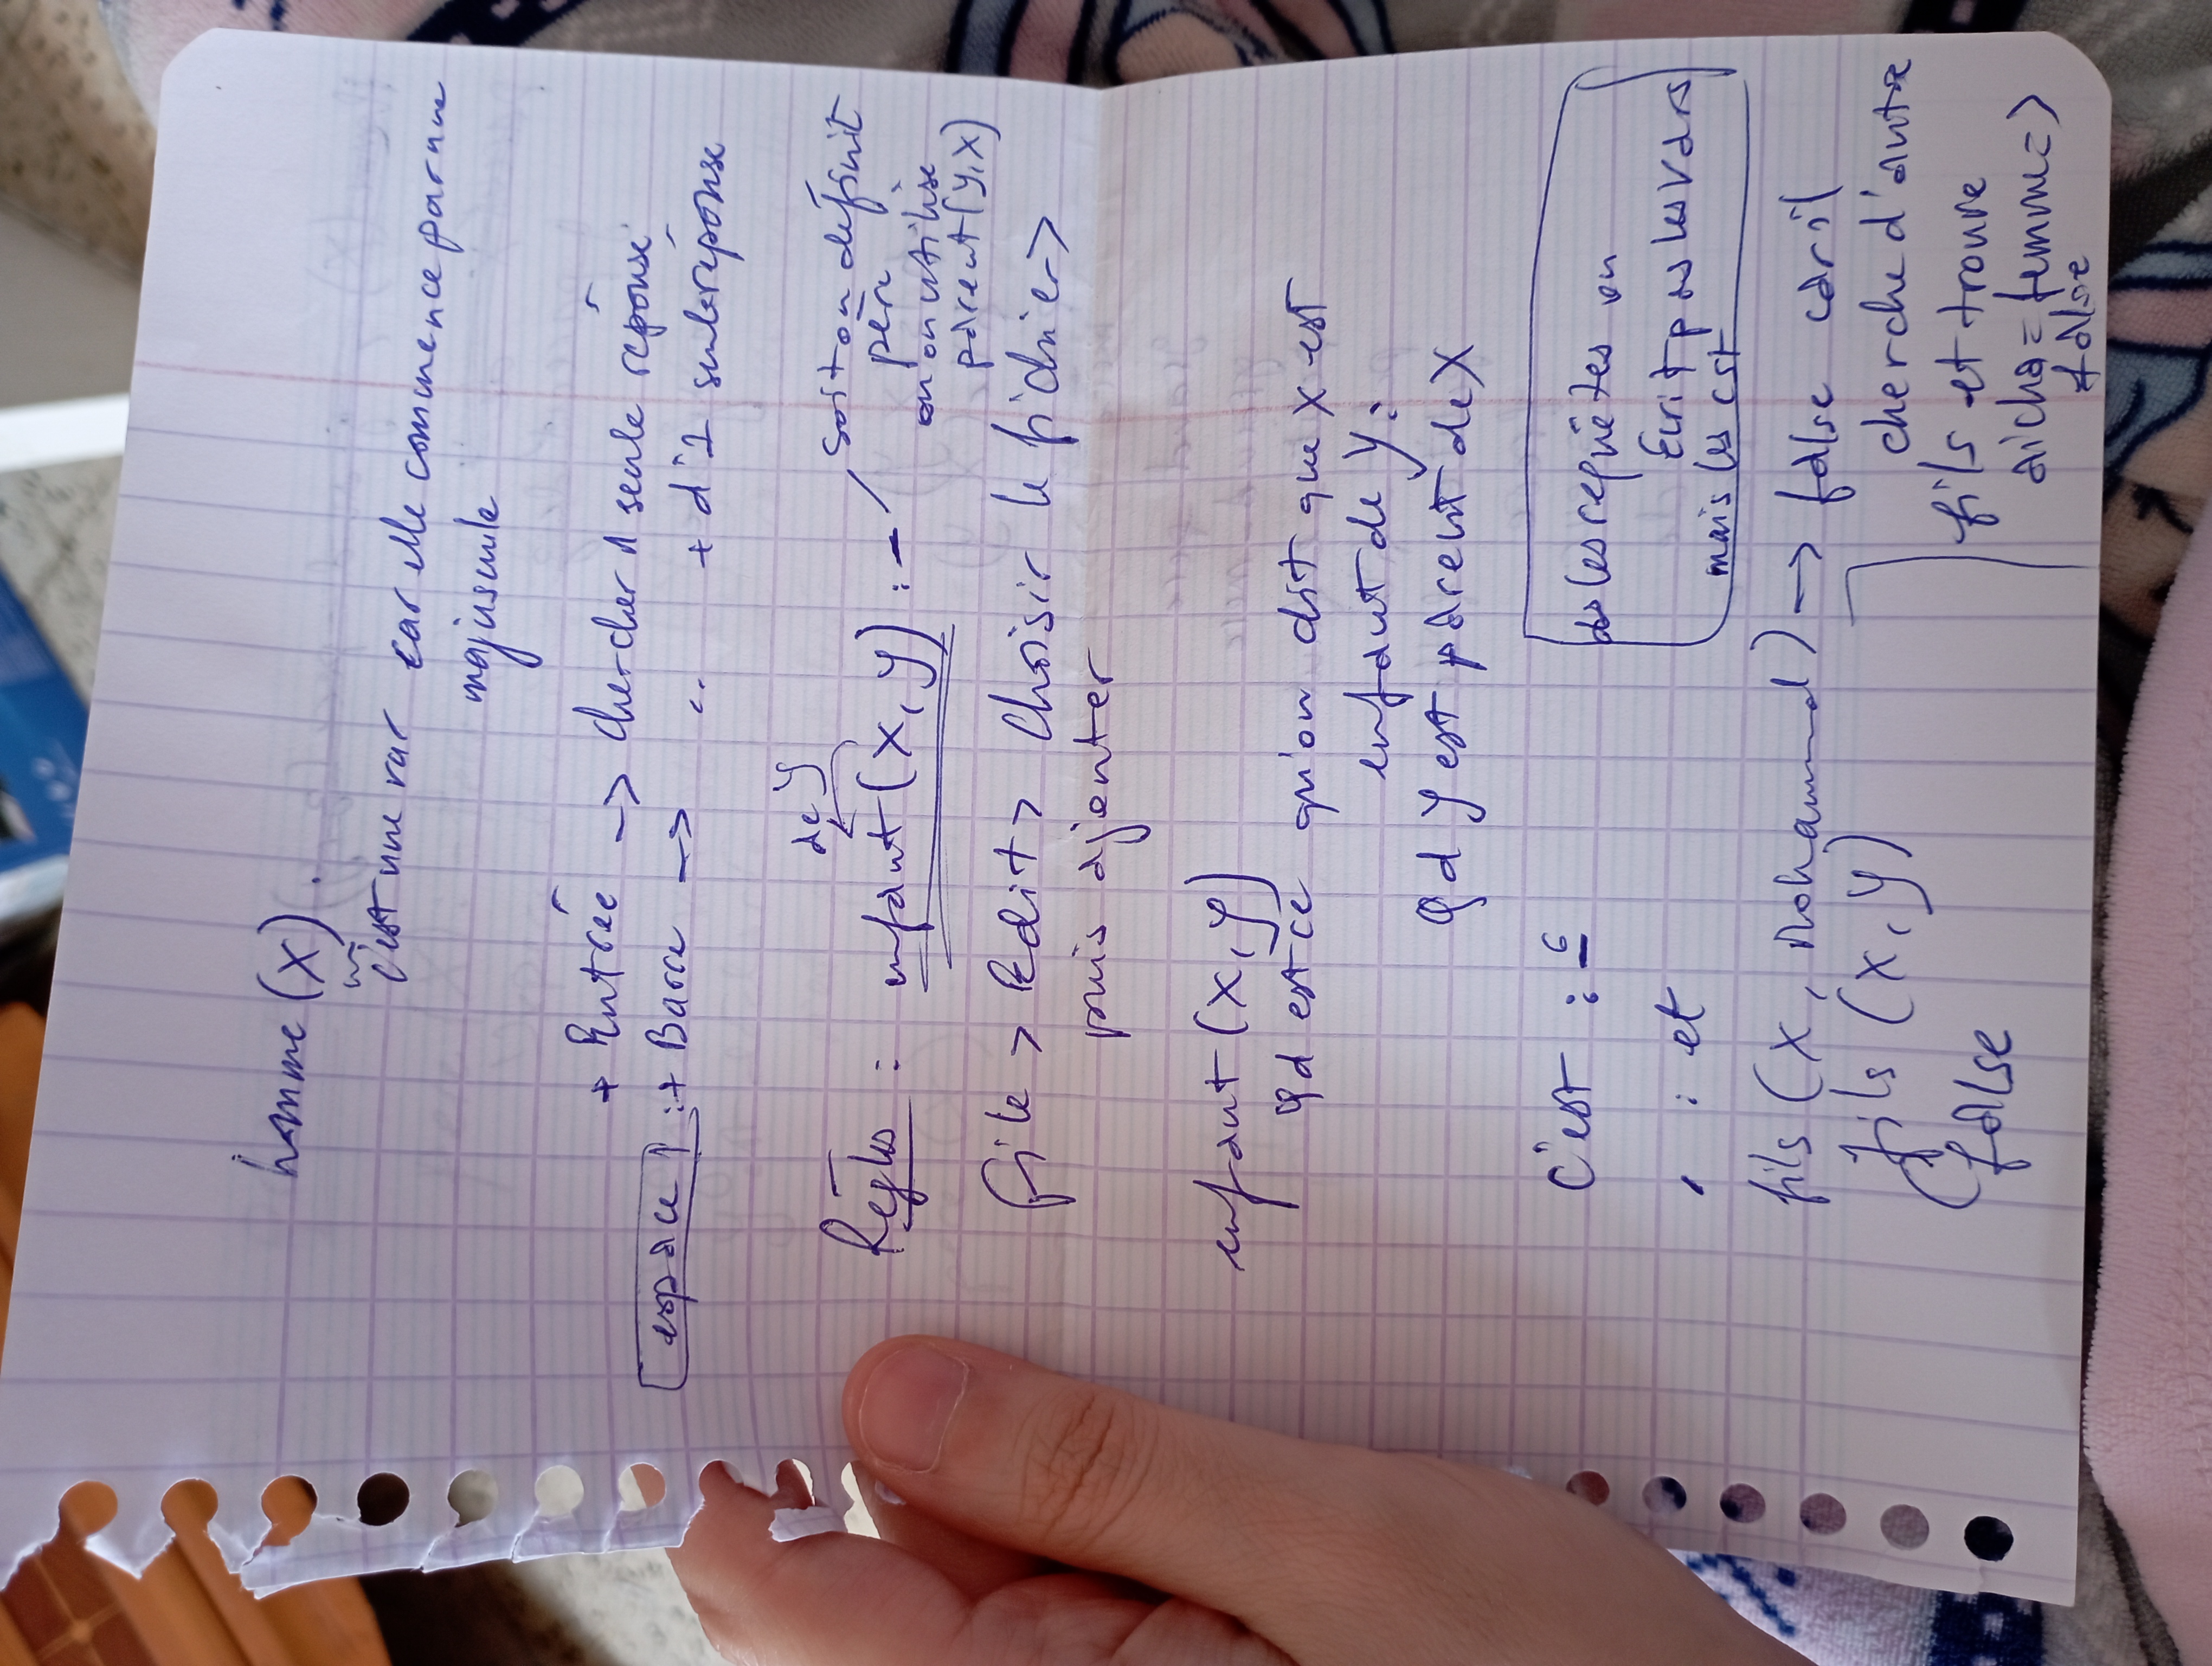 homme (X).
c'est une var car elle commence par une
majuscule
+ Entrée -> chercher 1 seule réponse
espace : + Barre -> " + d'1 seule réponse
de Y
Règles : enfant (X, Y) :-
soit on définit
père
ou on utilise
parent (Y, X)
File > Edit > Choisir le fichier >
puis ajouter
enfant (X, Y)
Qd est ce qu'on dit que X est
enfant de Y :
Qd Y est parent de X
C'est : - 6
, : et
ds les requêtes on
Ecrit pas les Vars
mais les cst
fils (X, Mohammed) -> false car il
cherche d'autre
fils et trouve
aicha = femme =>
false
fils (X, Y)
false